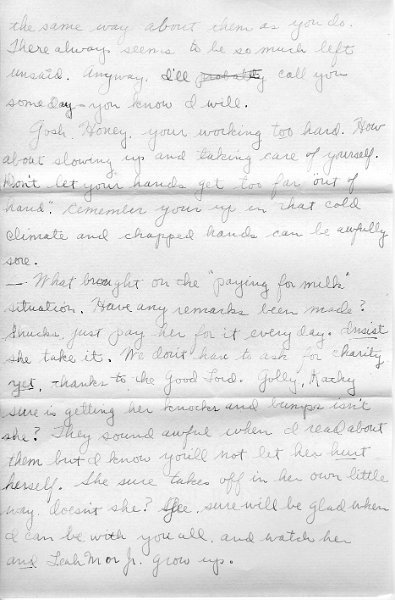 the same way about them as you do.
There always seems to be so much left
unsaid. Anyway, I'll probably call you
someday - you know I will.
Gosh, Honey, your working too hard. How
about slowing up and taking care of yourself.
Don't let your hands get too far "out of
hand". Remember your up in that cold
climate and chapped hands can be awfully
sore.
— What brought on the "paying for milk"
situation. Have any remarks been made?
Shucks, just pay her for it every day. Insist
she take it. We don't have to ask for charity
yet, thanks to the Good Lord. Golly, Kathy
sure is getting her knocks and bumps isn't
she? They sound awful when I read about
them but I know you'll not let her hurt
herself. She sure takes off in her own little
way, doesn't she? Gee, sure will be glad when
I can be with you all, and watch her
and Leah M or Jr. grow up.